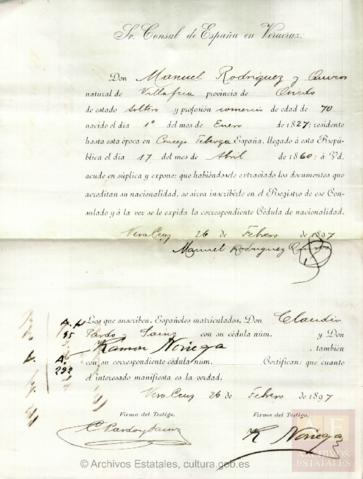 Sr. Consul de España en Veracruz.
Don Manuel Rodriguez y
natural de Villafria provincia de Oviedo
de estado soltero y profesión comercio de edad de 70
nacido el dia 1º del mes de Enero de 1827; residente
hasta esta época en Concejo Teberga España, llegado á esta Repú-
blica el dia 17 del mes de Abril de 1860: á Vd.
acude en súplica y expone: que habiéndosele extraviado los documentos que
acreditan su nacionalidad, se sirva inscribirle en el Registro de ese Con-
sulado y á la vez se le expida la correspondiente Cédula de nacionalidad.
Vera Cruz 26 de Febrero de 1897
Manuel Rodriguez
Los que suscriben, Españoles matriculados, Don Claudio
Pardo y Sainz con su cédula núm. y Don
Ramon Noriega, también
con su correspondiente cédula núm. Certifican: que cuanto
el interesado manifiesta es la verdad.
Vera Cruz 26 de Febrero de 1897
Firma del Testigo. Firma del Testigo.
C Pardo y Sainz R Noriega
© Archivos Estatales, cultura.gob.es
ARCHIVOS
ESTATALES